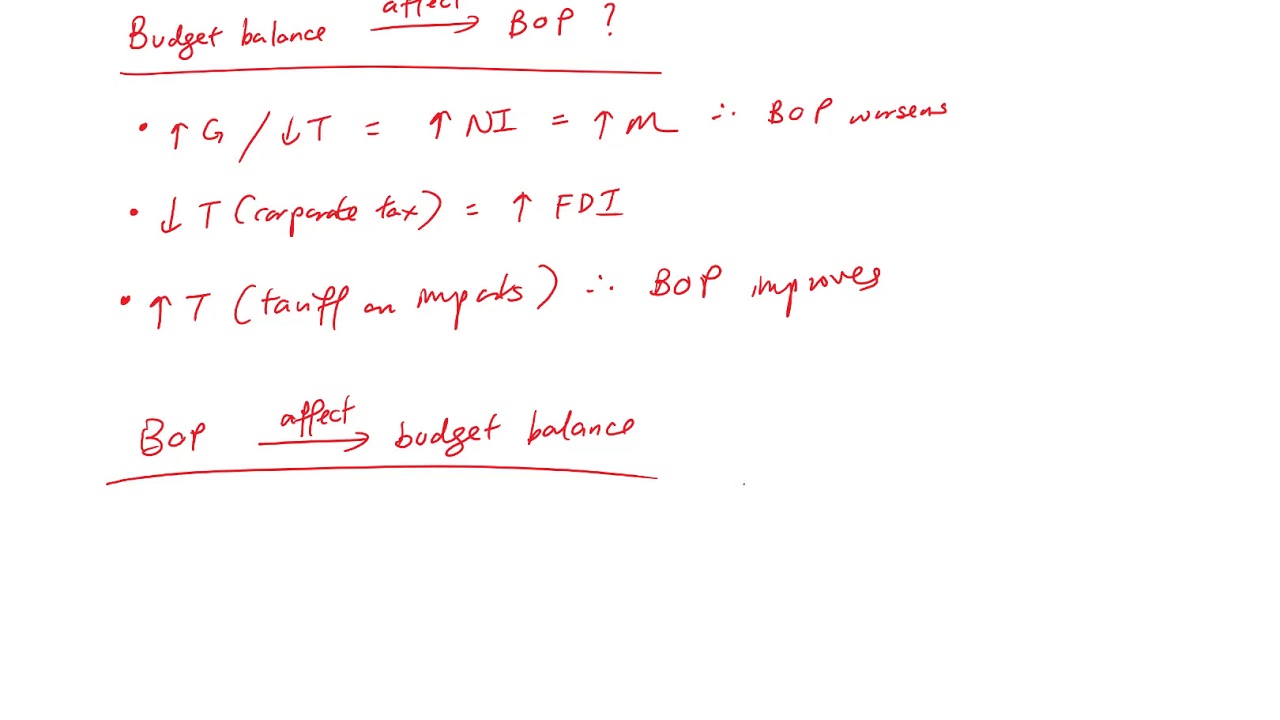 affect
Budget balance → BOP ?
• ↑ G / ↓ T = ↑ NI = ↑ M ∴ BOP worsens
• ↓ T (corporate tax) = ↑ FDI
• ↑ T (tariff on imports) ∴ BOP improves
affect
BOP → budget balance